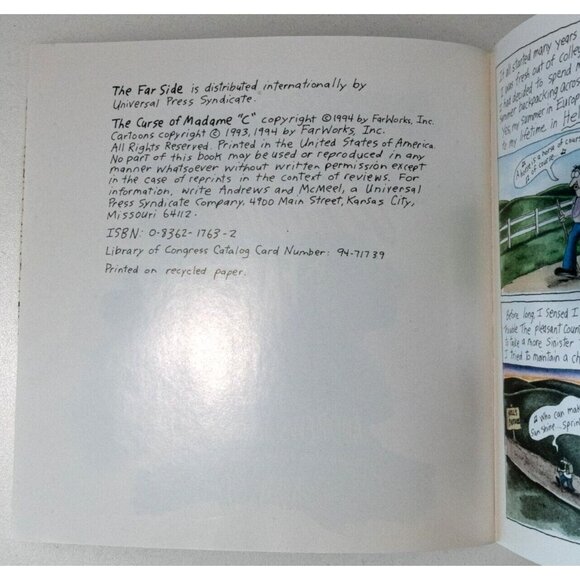 The Far Side is distributed internationally by
Universal Press Syndicate.
The Curse of Madame "C" copyright © 1994 by FarWorks, Inc.
Cartoons copyright © 1993, 1994 by FarWorks, Inc.
All Rights Reserved. Printed in the United States of America.
No part of this book may be used or reproduced in any
manner whatsoever without written permission except
in the case of reprints in the context of reviews. For
information, write Andrews and McMeel, a Universal
Press Syndicate Company, 4900 Main Street, Kansas City,
Missouri 64112.
ISBN: 0-8362-1763-2
Library of Congress Catalog Card Number: 94-71739
Printed on recycled paper.
It all started many years
I was fresh out of colle
I had decided to spend m
summer backpacking across
Yes, my summer in Europ
to my lifetime in He
A horse is a horse of cour
of course
Before long, I sensed I
The pleasant Coun
to take a more Sinister
I tried to maintain a ch
Who can mak
sun shine... sprin